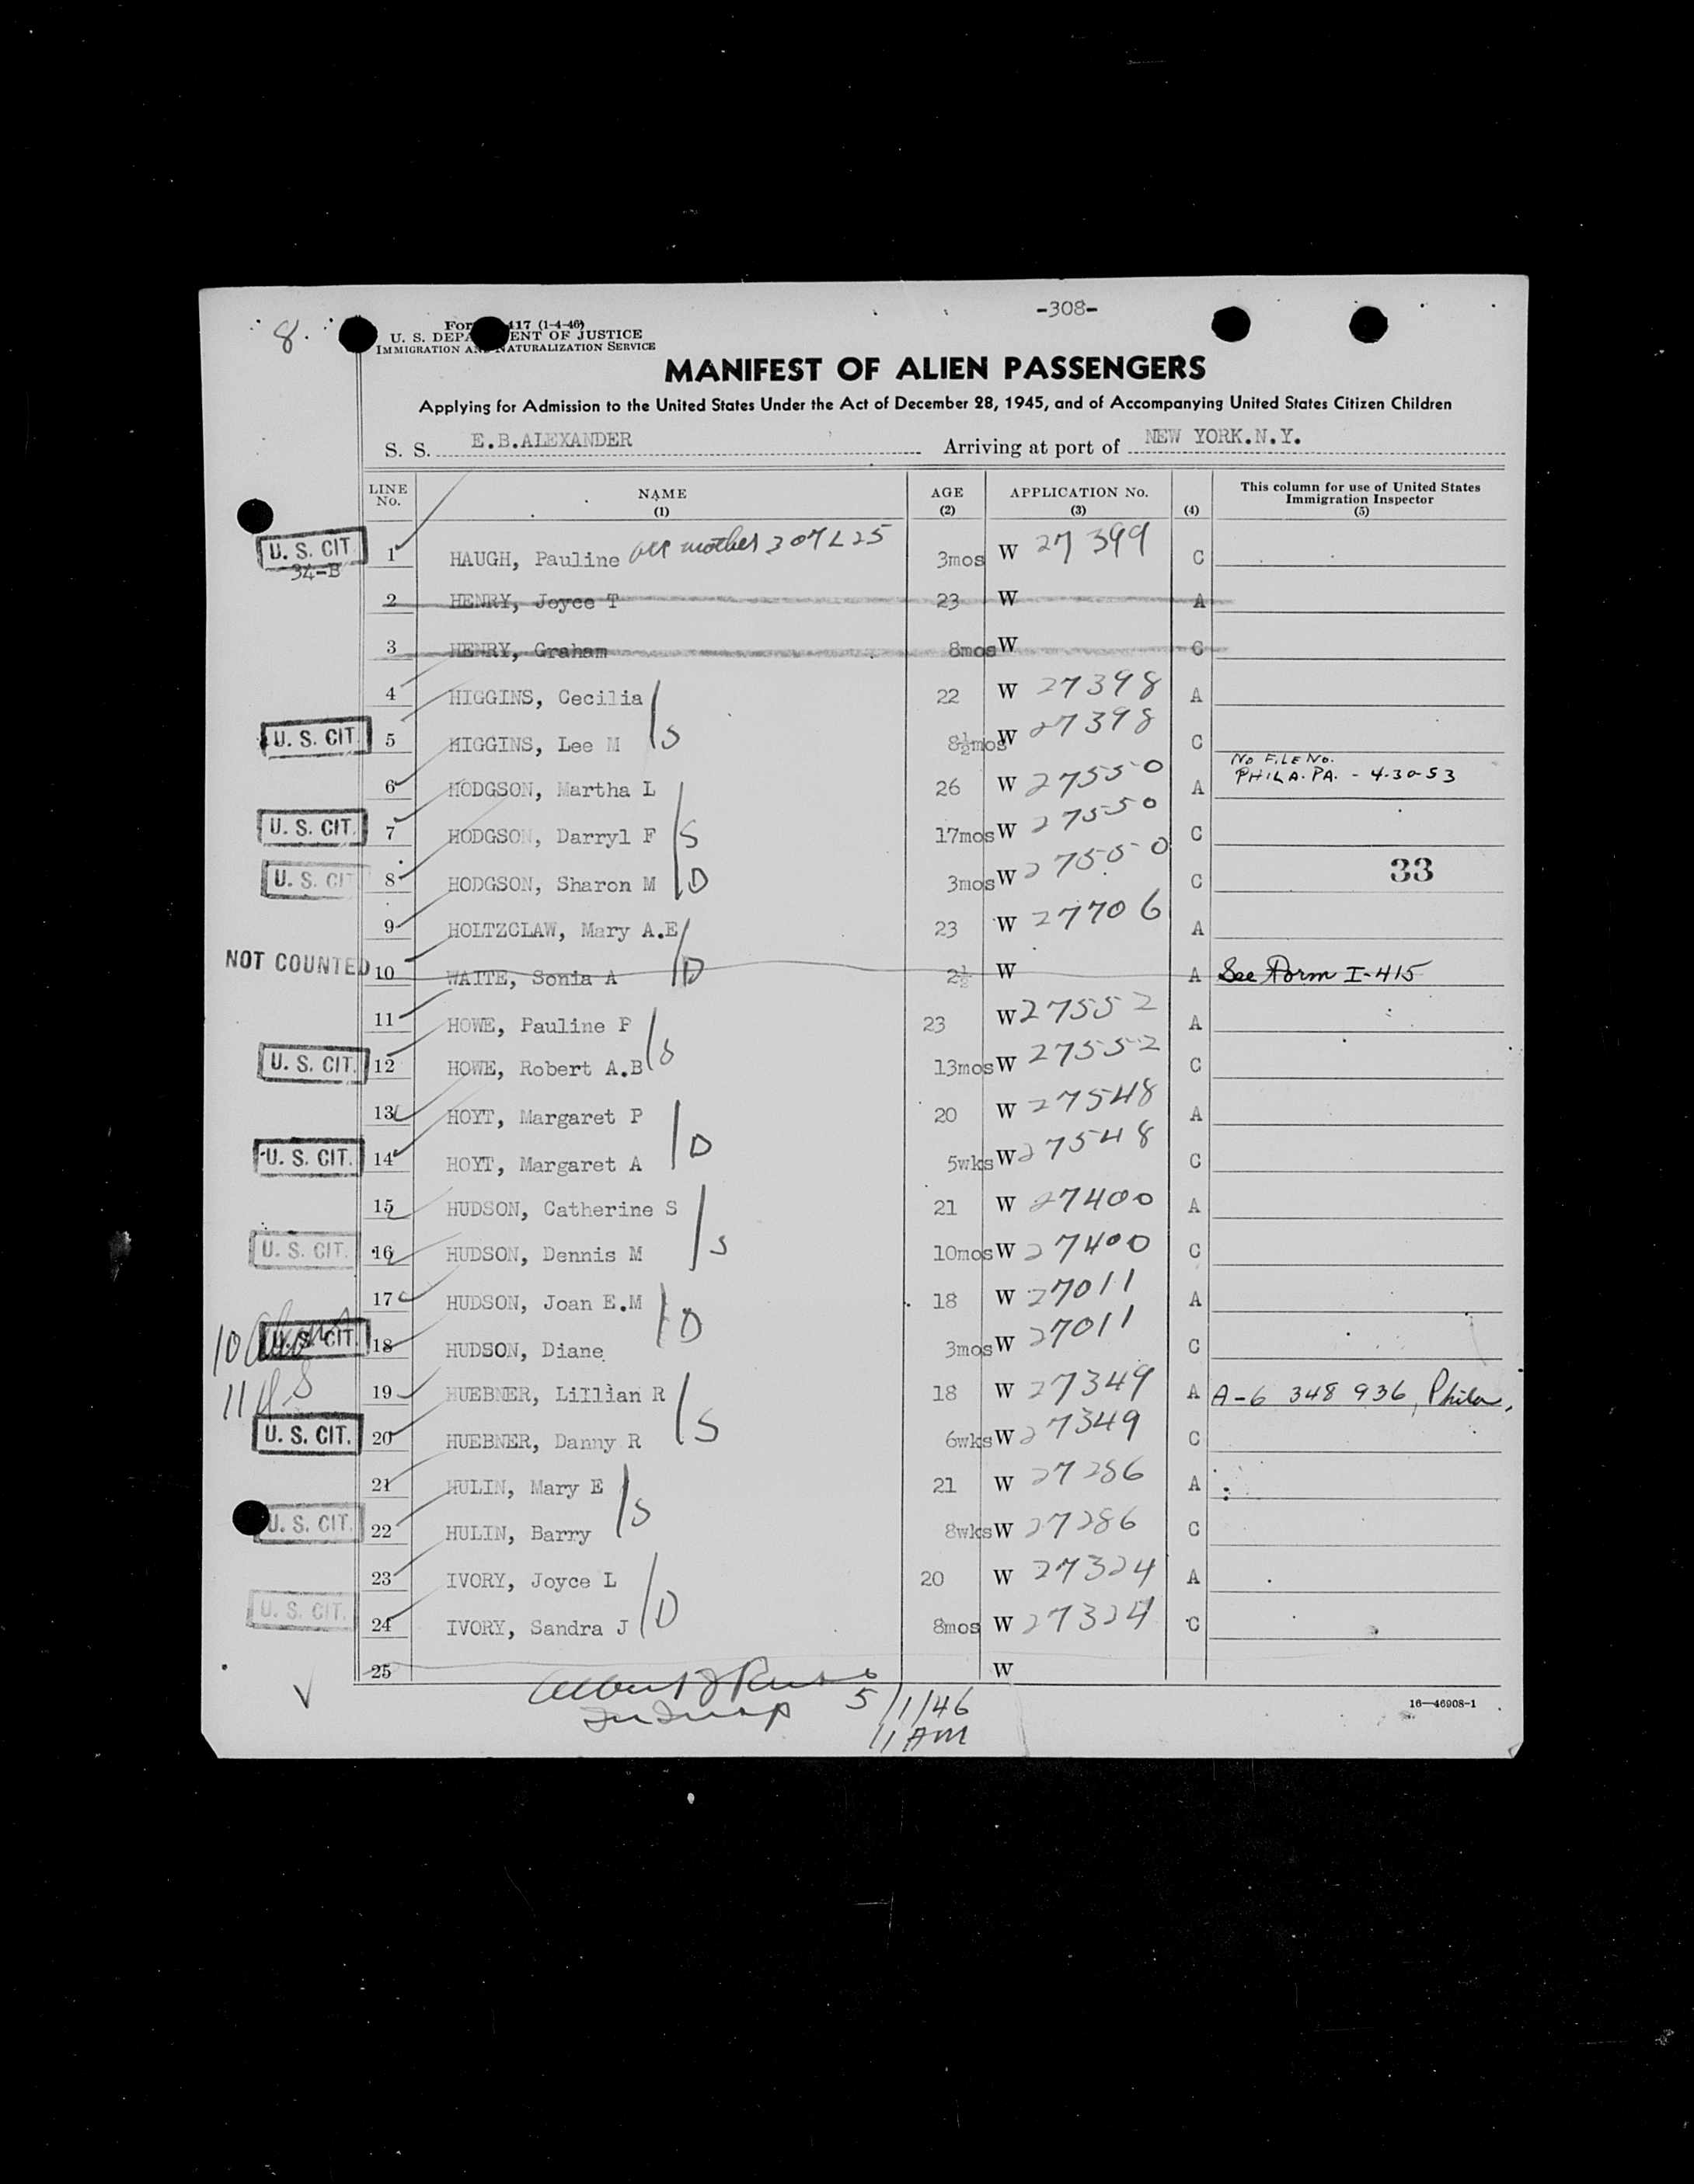 -308-
8.
For 417 (1-4-46)
U. S. DEPA ENT OF JUSTICE
IMMIGRATION AN NATURALIZATION SERVICE
MANIFEST OF ALIEN PASSENGERS
Applying for Admission to the United States Under the Act of December 28, 1945, and of Accompanying United States Citizen Children
S. S. E.B.ALEXANDER Arriving at port of NEW YORK.N.Y.
LINE No. NAME (1) AGE (2) APPLICATION No. (3) (4) This column for use of United States Immigration Inspector (5)
U. S. CIT. 1 HAUGH, Pauline mother 307 L 25 3mos W 27399 C
34-B
2 HENRY, Joyce T 23 W A
3 HENRY, Graham 8mos W C
4 HIGGINS, Cecilia 22 W 27398 A
U. S. CIT. 5 HIGGINS, Lee M S 8½mos W 27398 C
No FILE No.
6 HODGSON, Martha L 26 W 27550 A PHILA. PA. - 4-30-53
U. S. CIT. 7 HODGSON, Darryl F S 17mos W 27550 C
U. S. CIT 8 HODGSON, Sharon M D 3mos W 27550 C 33
9 HOLTZCLAW, Mary A.E 23 W 27706 A
NOT COUNTED 10 WAITE, Sonia A D 2½ W A See Form I-415
11 HOWE, Pauline P 23 W 27552 A
U. S. CIT. 12 HOWE, Robert A.B S 13mos W 27552 C
13 HOYT, Margaret P 20 W 27548 A
U. S. CIT. 14 HOYT, Margaret A D 5wks W 27548 C
15 HUDSON, Catherine S 21 W 27400 A
U. S. CIT. 16 HUDSON, Dennis M S 10mos W 27400 C
17 HUDSON, Joan E.M 18 W 27011 A
10 U. S. CIT. 18 HUDSON, Diane D 3mos W 27011 C
11 19 HUEBNER, Lillian R 18 W 27349 A A-6 348 936, Phila.
U. S. CIT. 20 HUEBNER, Danny R S 6wks W 27349 C
21 HULIN, Mary E 21 W 27286 A
U. S. CIT. 22 HULIN, Barry S 8wks W 27286 C
23 IVORY, Joyce L 20 W 27324 A
U. S. CIT. 24 IVORY, Sandra J D 8mos W 27324 C
25 W
5/1/46
11 AM
16—46908-1